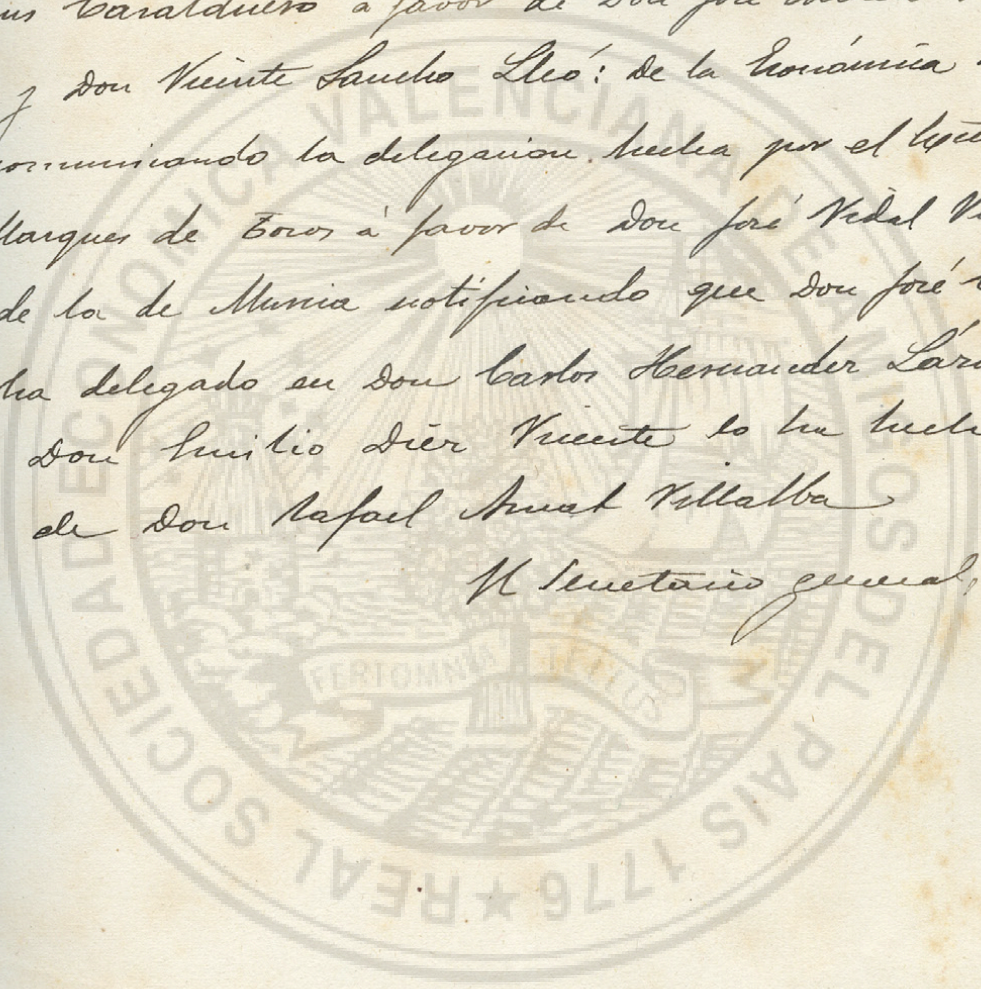 a favor de Don José
y Don Vicente Sancho Lleó: De la Económica
comunicando la delegacion hecha por el
Marques de Toros á favor de Don José Vidal
de la de Murcia notificando que Don José
ha delegado en Don Carlos Hernander
Don Emilio Dier Vicente lo ha
de Don Rafael Amat Villalba
El Secretario general,
REAL SOCIEDAD ECONOMICA VALENCIANA DE AMIGOS DEL PAIS 1776
FERT OMNIA TELLUS